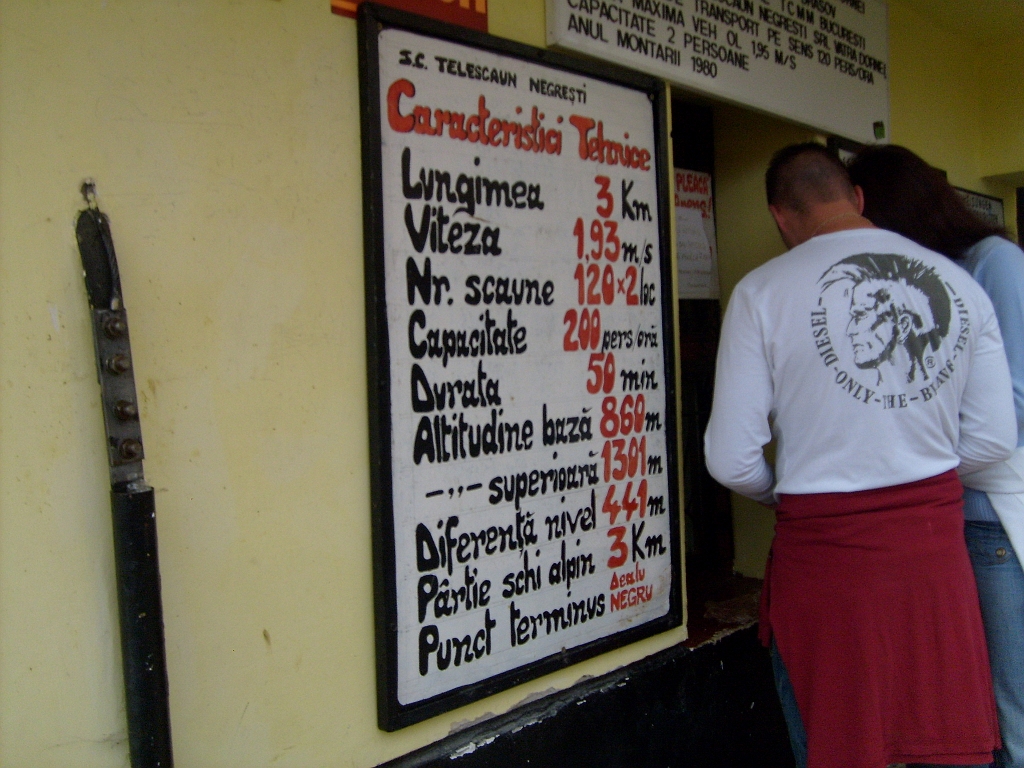 BRASOV
TCMM BUCURESTI
TRANSPORT PE SENS 120 PERS/ORA
MAXIMA VEH OL 1,95 M/S
CAPACITATE 2 PERSOANE
ANUL MONTARII 1980
S.C. TELESCAUN NEGREȘTI
Caracteristici Tehnice
Lungimea 3 Km
Viteza 1,93 m/s
Nr. scaune 120×2 loc
Capacitate 200 pers/oră
Durata 50 min
Altitudine bază 860 m
-,,- superioară 1301 m
Diferență nivel 441 m
Pârtie schi alpin 3 Km
Punct terminus Dealu NEGRU
PLEACĂ
DIESEL-ONLY-THE-BRAVE-DIESEL
®